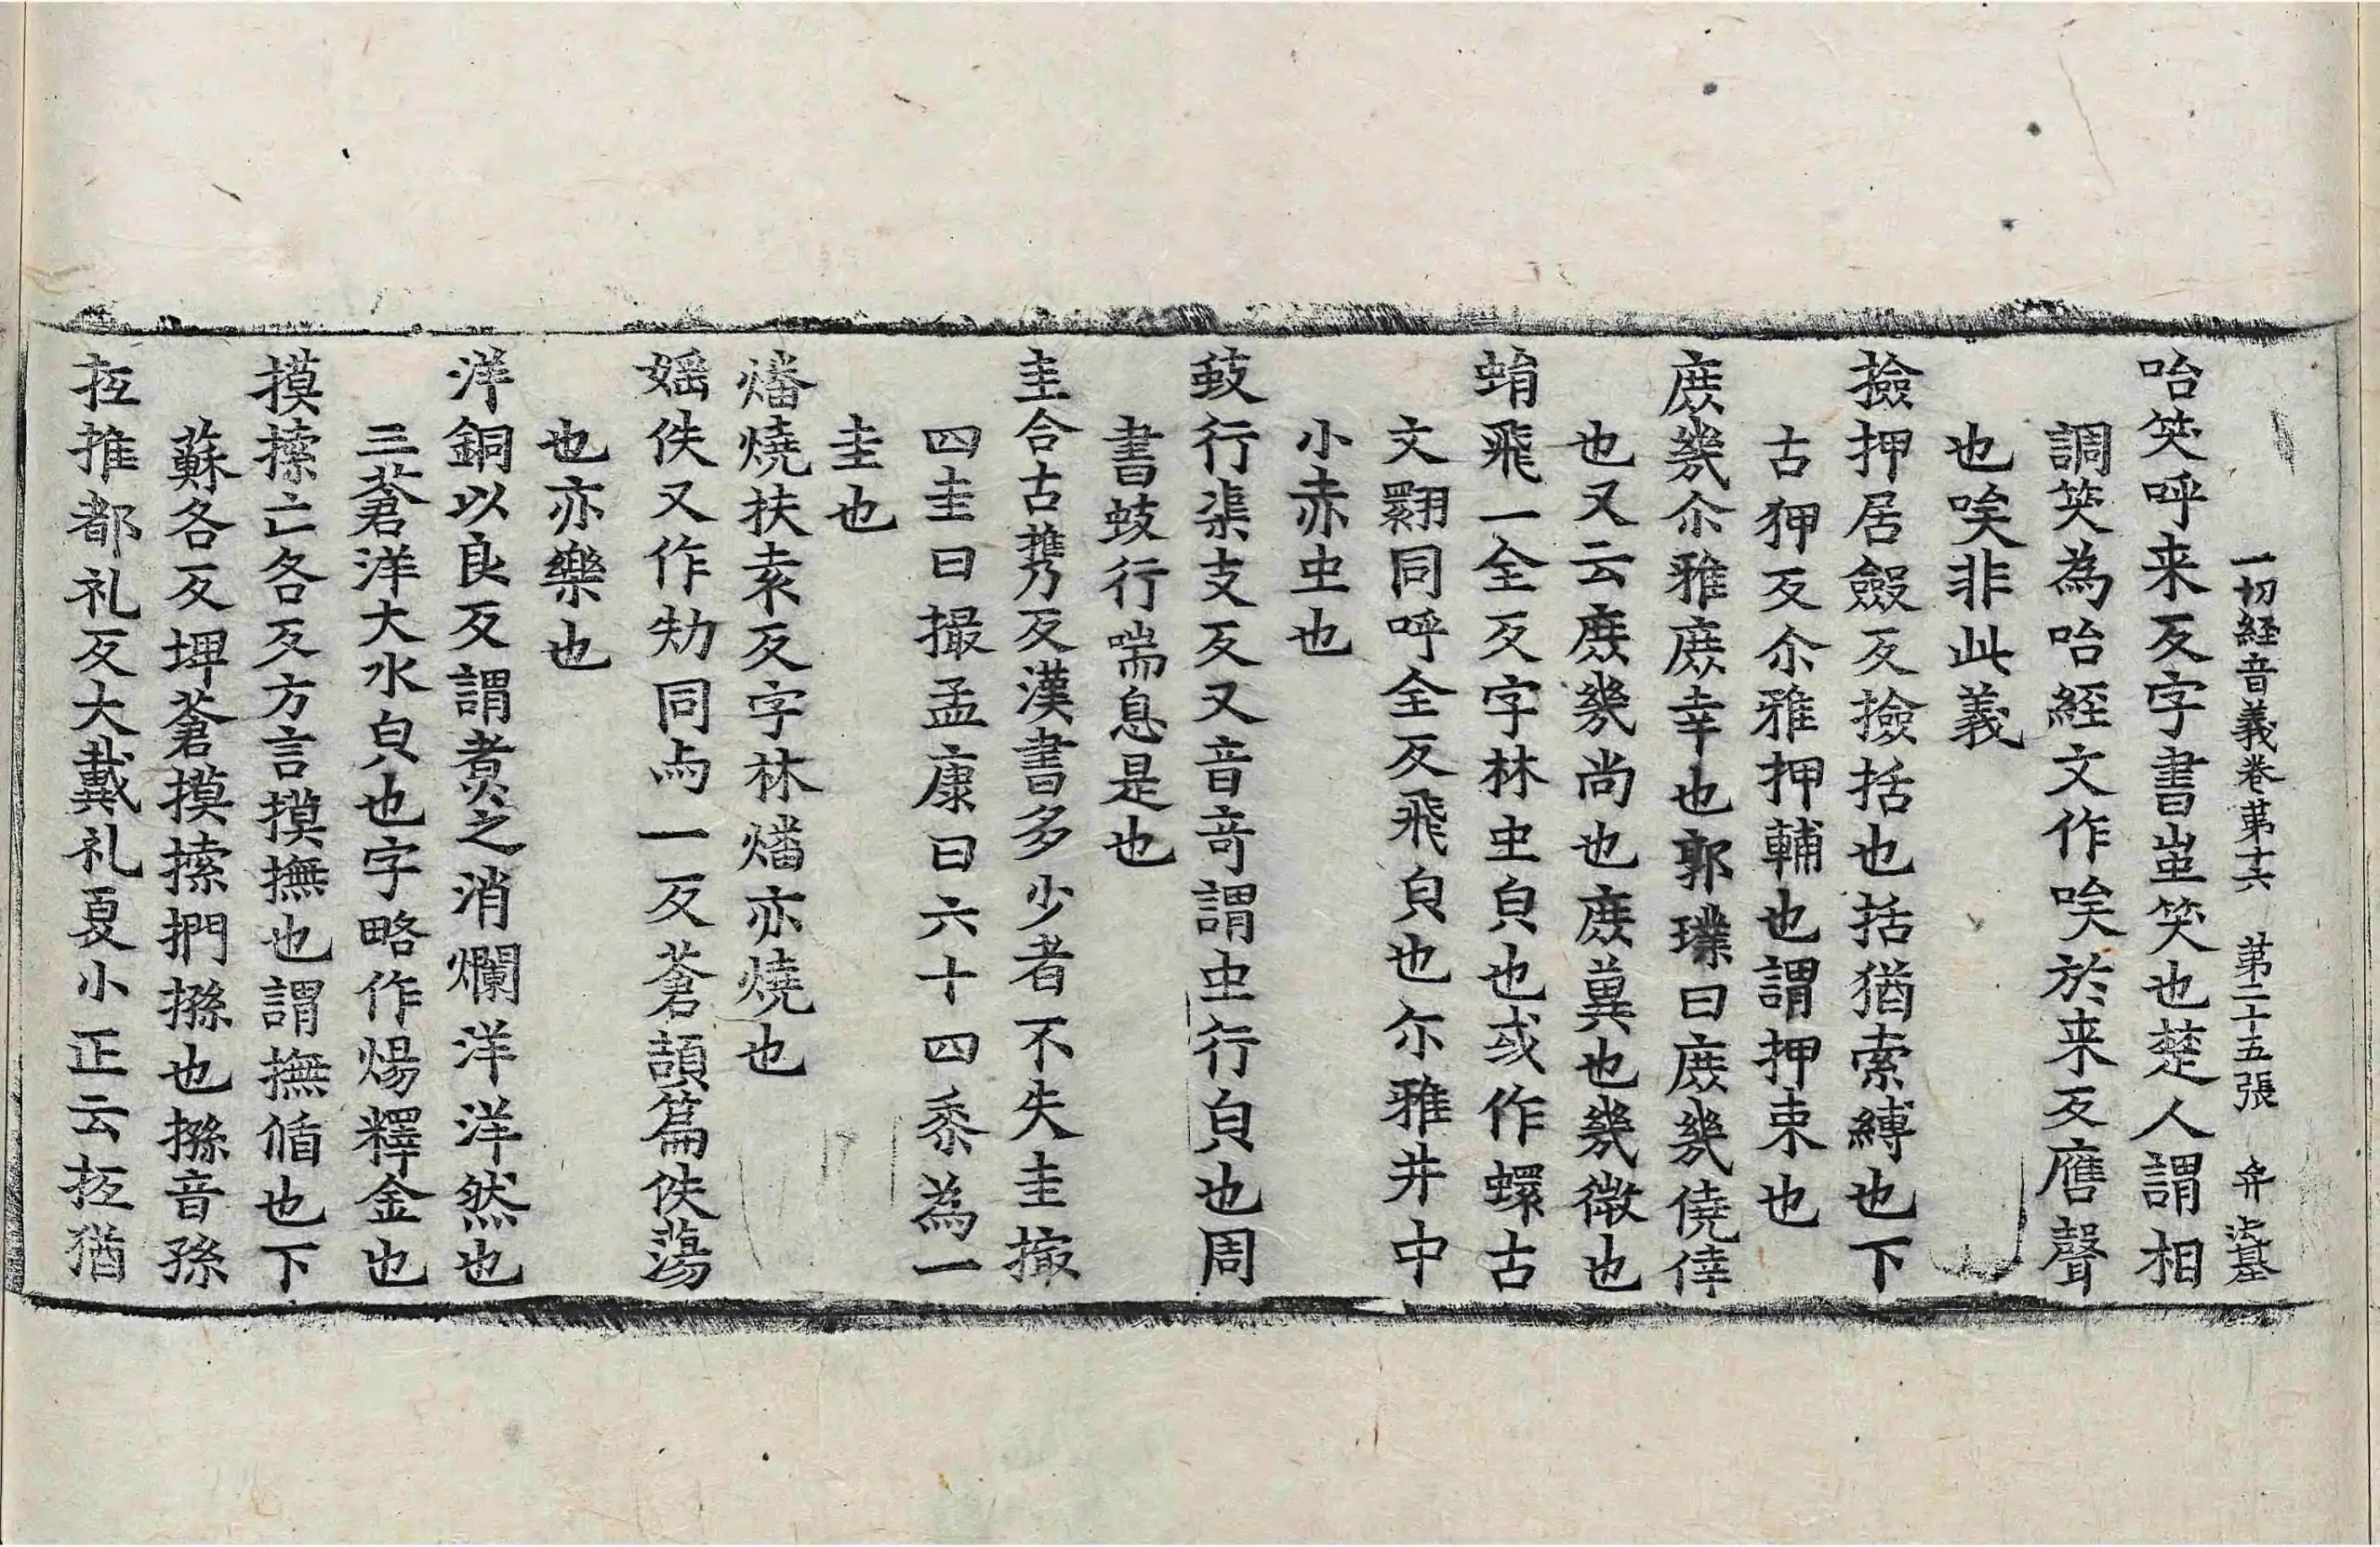 一切経音義卷第十六 第二十五張 弁
咍笑呼来反字書蚩笑也楚人謂相
調笑為咍経文作唉於来反譍聲
也唉非此義
撿押居儼反撿括也括猶索縛也下
古狎反尒雅押輔也謂押束也
庻幾尒雅庻幸也郭璞曰庻幾僥倖
也又云庻幾尚也庻冀也幾微也
蜎飛一全反字林虫皃也或作蠉古
文翾同呼全反飛皃也尒雅井中
小赤虫也
蚑行渠支反又音奇謂虫行皃也周
書蚑行喘息是也
圭合古携反漢書多少者不失圭撮
四圭曰撮孟康曰六十四黍為一
圭也
燔燒扶袁反字林燔亦燒也
婬佚又作㔧同与一反蒼頡篇佚蕩
也亦樂也
洋銅以良反謂煑之消爛洋洋然也
三蒼洋大水皃也字略作煬釋金也
摸㨞亡各反方言摸撫也謂撫循也下
蘇各反埤蒼摸㨞捫搎也搎音孫
抵推都礼反大戴礼夏小正云抵猶